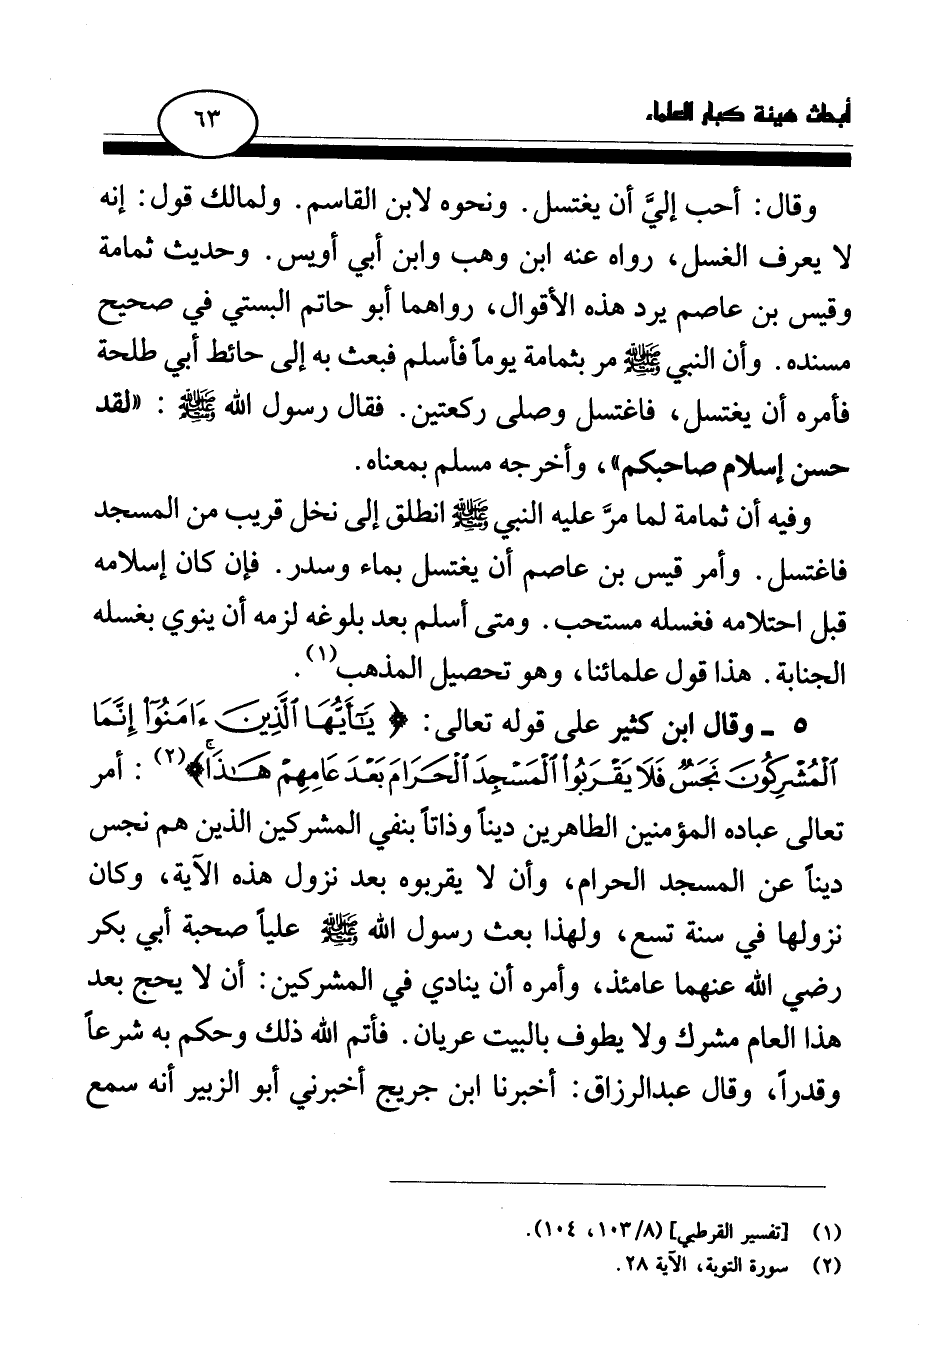 أبحاث هيئة كبار العلماء
٦٣
وقال: أحب إليَّ أن يغتسل. ونحوه لابن القاسم. ولمالك قول: إنه
لا يعرف الغسل، رواه عنه ابن وهب وابن أبي أويس. وحديث ثمامة
وقيس بن عاصم يرد هذه الأقوال، رواهما أبو حاتم البستي في صحيح
مسنده. وأن النبي ﷺ مر بثمامة يوماً فأسلم فبعث به إلى حائط أبي طلحة
فأمره أن يغتسل، فاغتسل وصلى ركعتين. فقال رسول الله ﷺ : «لقد
حسن إسلام صاحبكم»، وأخرجه مسلم بمعناه.
وفيه أن ثمامة لما مرَّ عليه النبي ﷺ انطلق إلى نخل قريب من المسجد
فاغتسل. وأمر قيس بن عاصم أن يغتسل بماء وسدر. فإن كان إسلامه
قبل احتلامه فغسله مستحب. ومتى أسلم بعد بلوغه لزمه أن ينوي بغسله
الجنابة. هذا قول علمائنا، وهو تحصيل المذهب(١).
٥ ـ وقال ابن كثير على قوله تعالى: ﴿ يَٰٓأَيُّهَا ٱلَّذِينَ ءَامَنُوٓا۟ إِنَّمَا
ٱلْمُشْرِكُونَ نَجَسٌ فَلَا يَقْرَبُوا۟ ٱلْمَسْجِدَ ٱلْحَرَامَ بَعْدَ عَامِهِمْ هَٰذَا ۚ﴾(٢) : أمر
تعالى عباده المؤمنين الطاهرين ديناً وذاتاً بنفي المشركين الذين هم نجس
ديناً عن المسجد الحرام، وأن لا يقربوه بعد نزول هذه الآية، وكان
نزولها في سنة تسع، ولهذا بعث رسول الله ﷺ علياً صحبة أبي بكر
رضي الله عنهما عامئذ، وأمره أن ينادي في المشركين: أن لا يحج بعد
هذا العام مشرك ولا يطوف بالبيت عريان. فأتم الله ذلك وحكم به شرعاً
وقدراً، وقال عبدالرزاق: أخبرنا ابن جريج أخبرني أبو الزبير أنه سمع
(١) [تفسير القرطبي] (٨/ ١٠٣، ١٠٤).
(٢) سورة التوبة، الآية ٢٨.